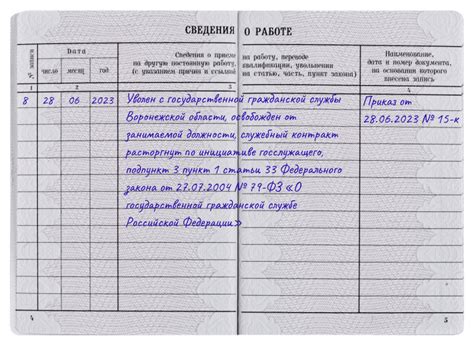 СВЕДЕНИЯ О РАБОТЕ
№ записи
Дата
число
месяц
год
Сведения о приеме на работу, переводе
на другую постоянную работу, квалификации, увольнении
(с указанием причин и ссылкой на статью, часть, пункт закона)
Наименование,
дата и номер документа,
на основании которого
внесена запись
1 2 3 4
8 28 06 2023 Уволен с государственной гражданской службы
Воронежской области, освобожден от
занимаемой должности, служебный контракт
расторгнут по инициативе госслужащего,
подпункт 3 пункт 1 статьи 33 Федерального
закона от 27.07.2004 № 79-ФЗ «О
государственной гражданской службе
Российской Федерации»
Приказ от
28.06.2023 № 15-к
4
5